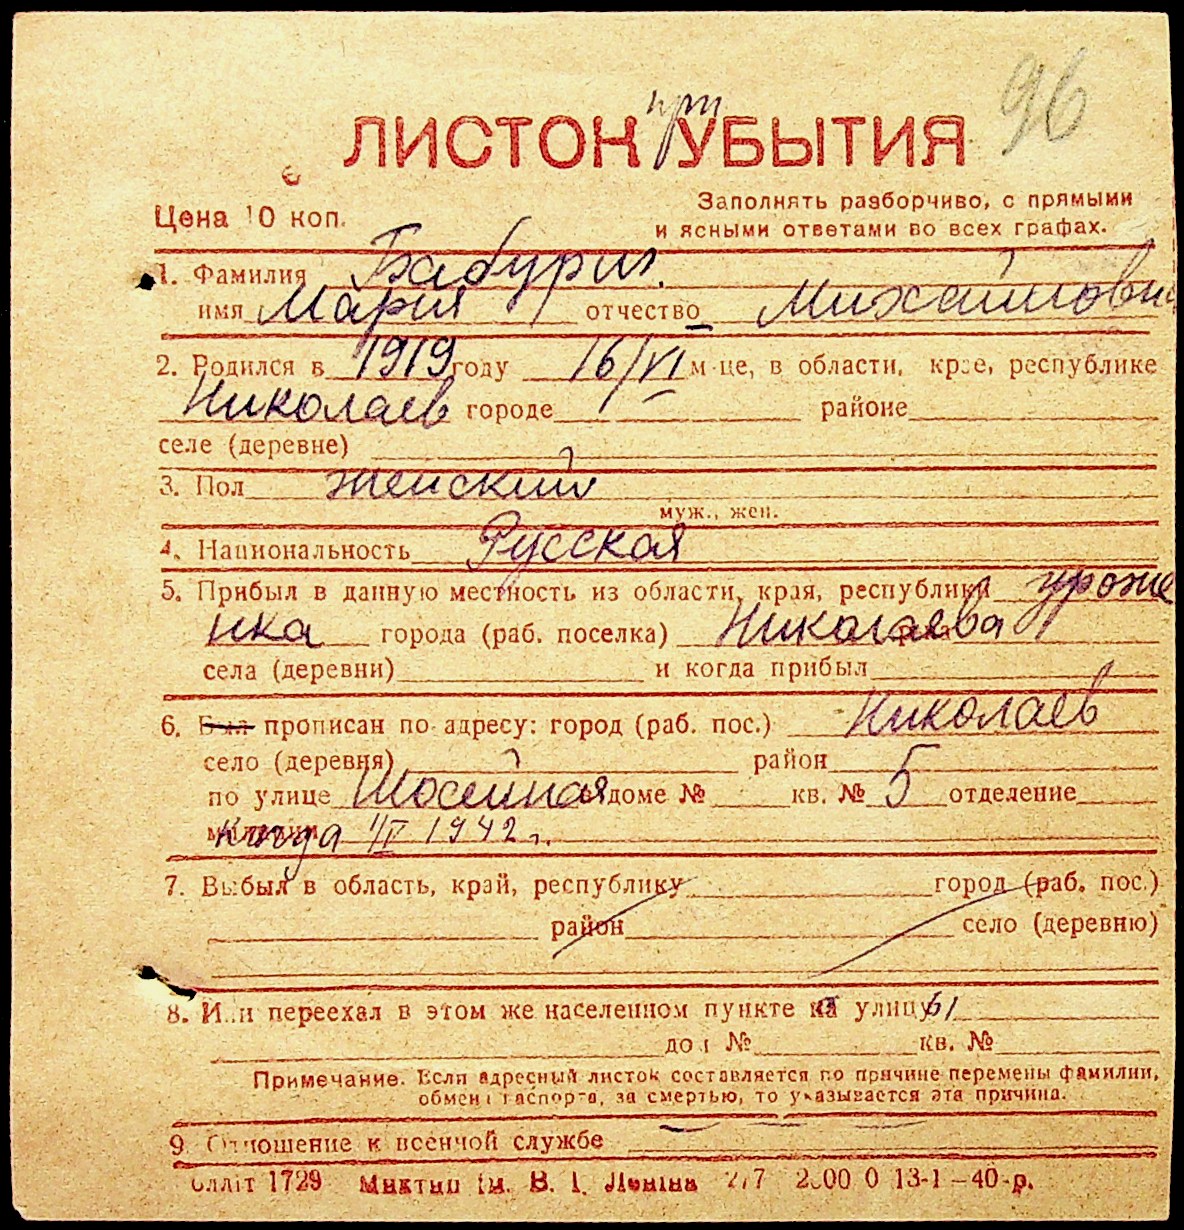 96
ЛИСТОК при УБЫТИЯ
Заполнять разборчиво, с прямыми
Цена 10 коп.
и ясными ответами во всех графах.
1. Фамилия Бабурин.
имя Мария отчество Михайловн
2. Родился в 1919 году 16/VI м-це, в области, крае, республике
Николаев городе районе
селе (деревне)
3. Пол женский
муж., жен.
4. Национальность Русская
5. Прибыл в данную местность из области, края, республики уроже
нка города (раб. поселка) Николаева
села (деревни) и когда прибыл
6. Был прописан по адресу: город (раб. пос.) Николаев
село (деревня) район
по улице Шосейная доме № кв. № 5 отделение
когда 1942 г.
7. Выбыл в область, край, республику город (раб. пос.)
район село (деревню)
8. Или переехал в этом же населенном пункте на улицу 61
дом № кв. №
Примечание. Если адресный листок составляется по причине перемены фамилии,
обмена паспорта, за смертью, то указывается эта причина.
9. Отношение к военной службе
1729 ім. В. І. Леніна 13-1-40 р.